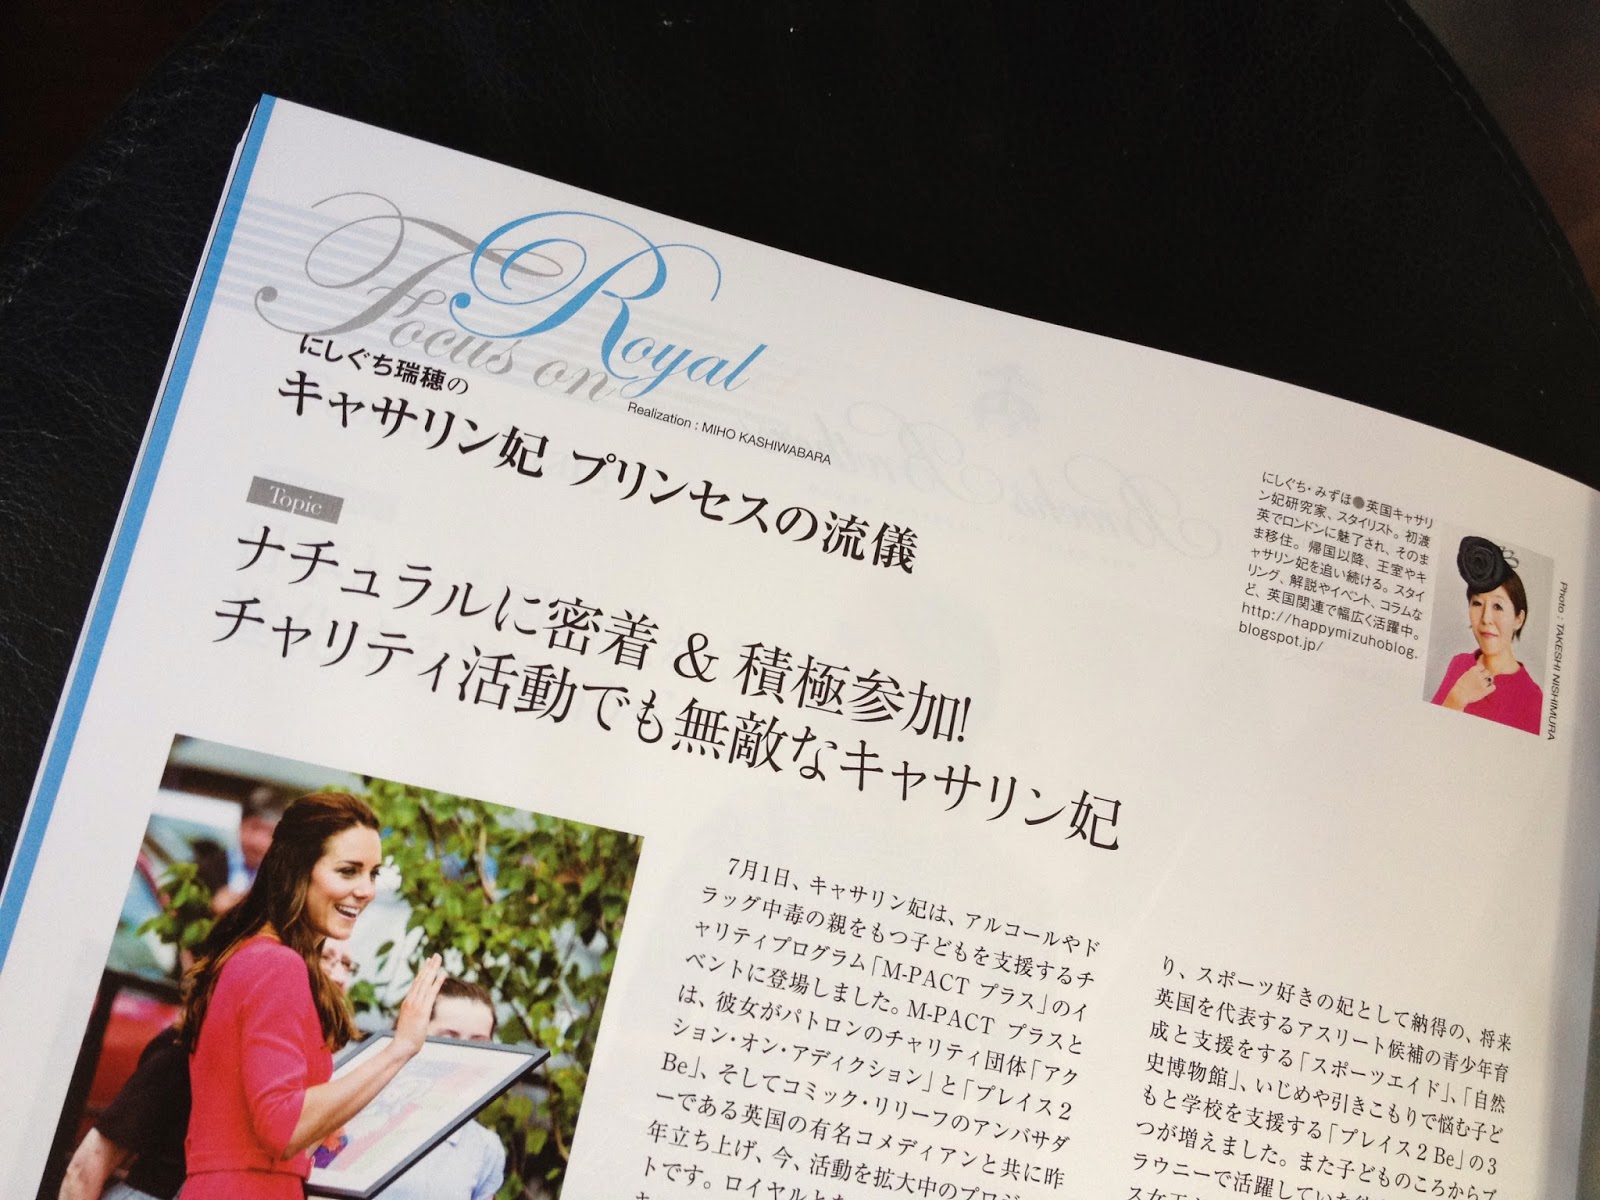 Focus on
Royal
にしぐち瑞穂の
Realization : MIHO KASHIWABARA
キャサリン妃 プリンセスの流儀
Topic
ナチュラルに密着 & 積極参加!
チャリティ活動でも無敵なキャサリン妃
にしぐち・みずほ●英国キャサリ
ン妃研究家、スタイリスト。初渡
英でロンドンに魅了され、そのま
ま移住。帰国以降、王室やキ
ャサリン妃を追い続ける。スタイ
リング、解説やイベント、コラムな
ど、英国関連で幅広く活躍中。
http://happymizuhoblog.
blogspot.jp/
Photo : TAKESHI NISHIMURA
7月1日、キャサリン妃は、アルコールやド
ラッグ中毒の親をもつ子どもを支援するチ
ャリティプログラム「M-PACT プラス」のイ
ベントに登場しました。M-PACT プラスと
は、彼女がパトロンのチャリティ団体「アク
ション・オン・アディクション」と「プレイス2
Be」、そしてコミック・リリーフのアンバサダ
ーである英国の有名コメディアンと共に昨
年立ち上げ、今、活動を拡大中のプロジ
トです。ロイヤルと
り、スポーツ好きの妃として納得の、将来
英国を代表するアスリート候補の青少年育
成と支援をする「スポーツエイド」、「自然
史博物館」、いじめや引きこもりで悩む子ど
もと学校を支援する「プレイス2Be」の3
つが増えました。また子どものころからブ
ラウニーで活躍していた